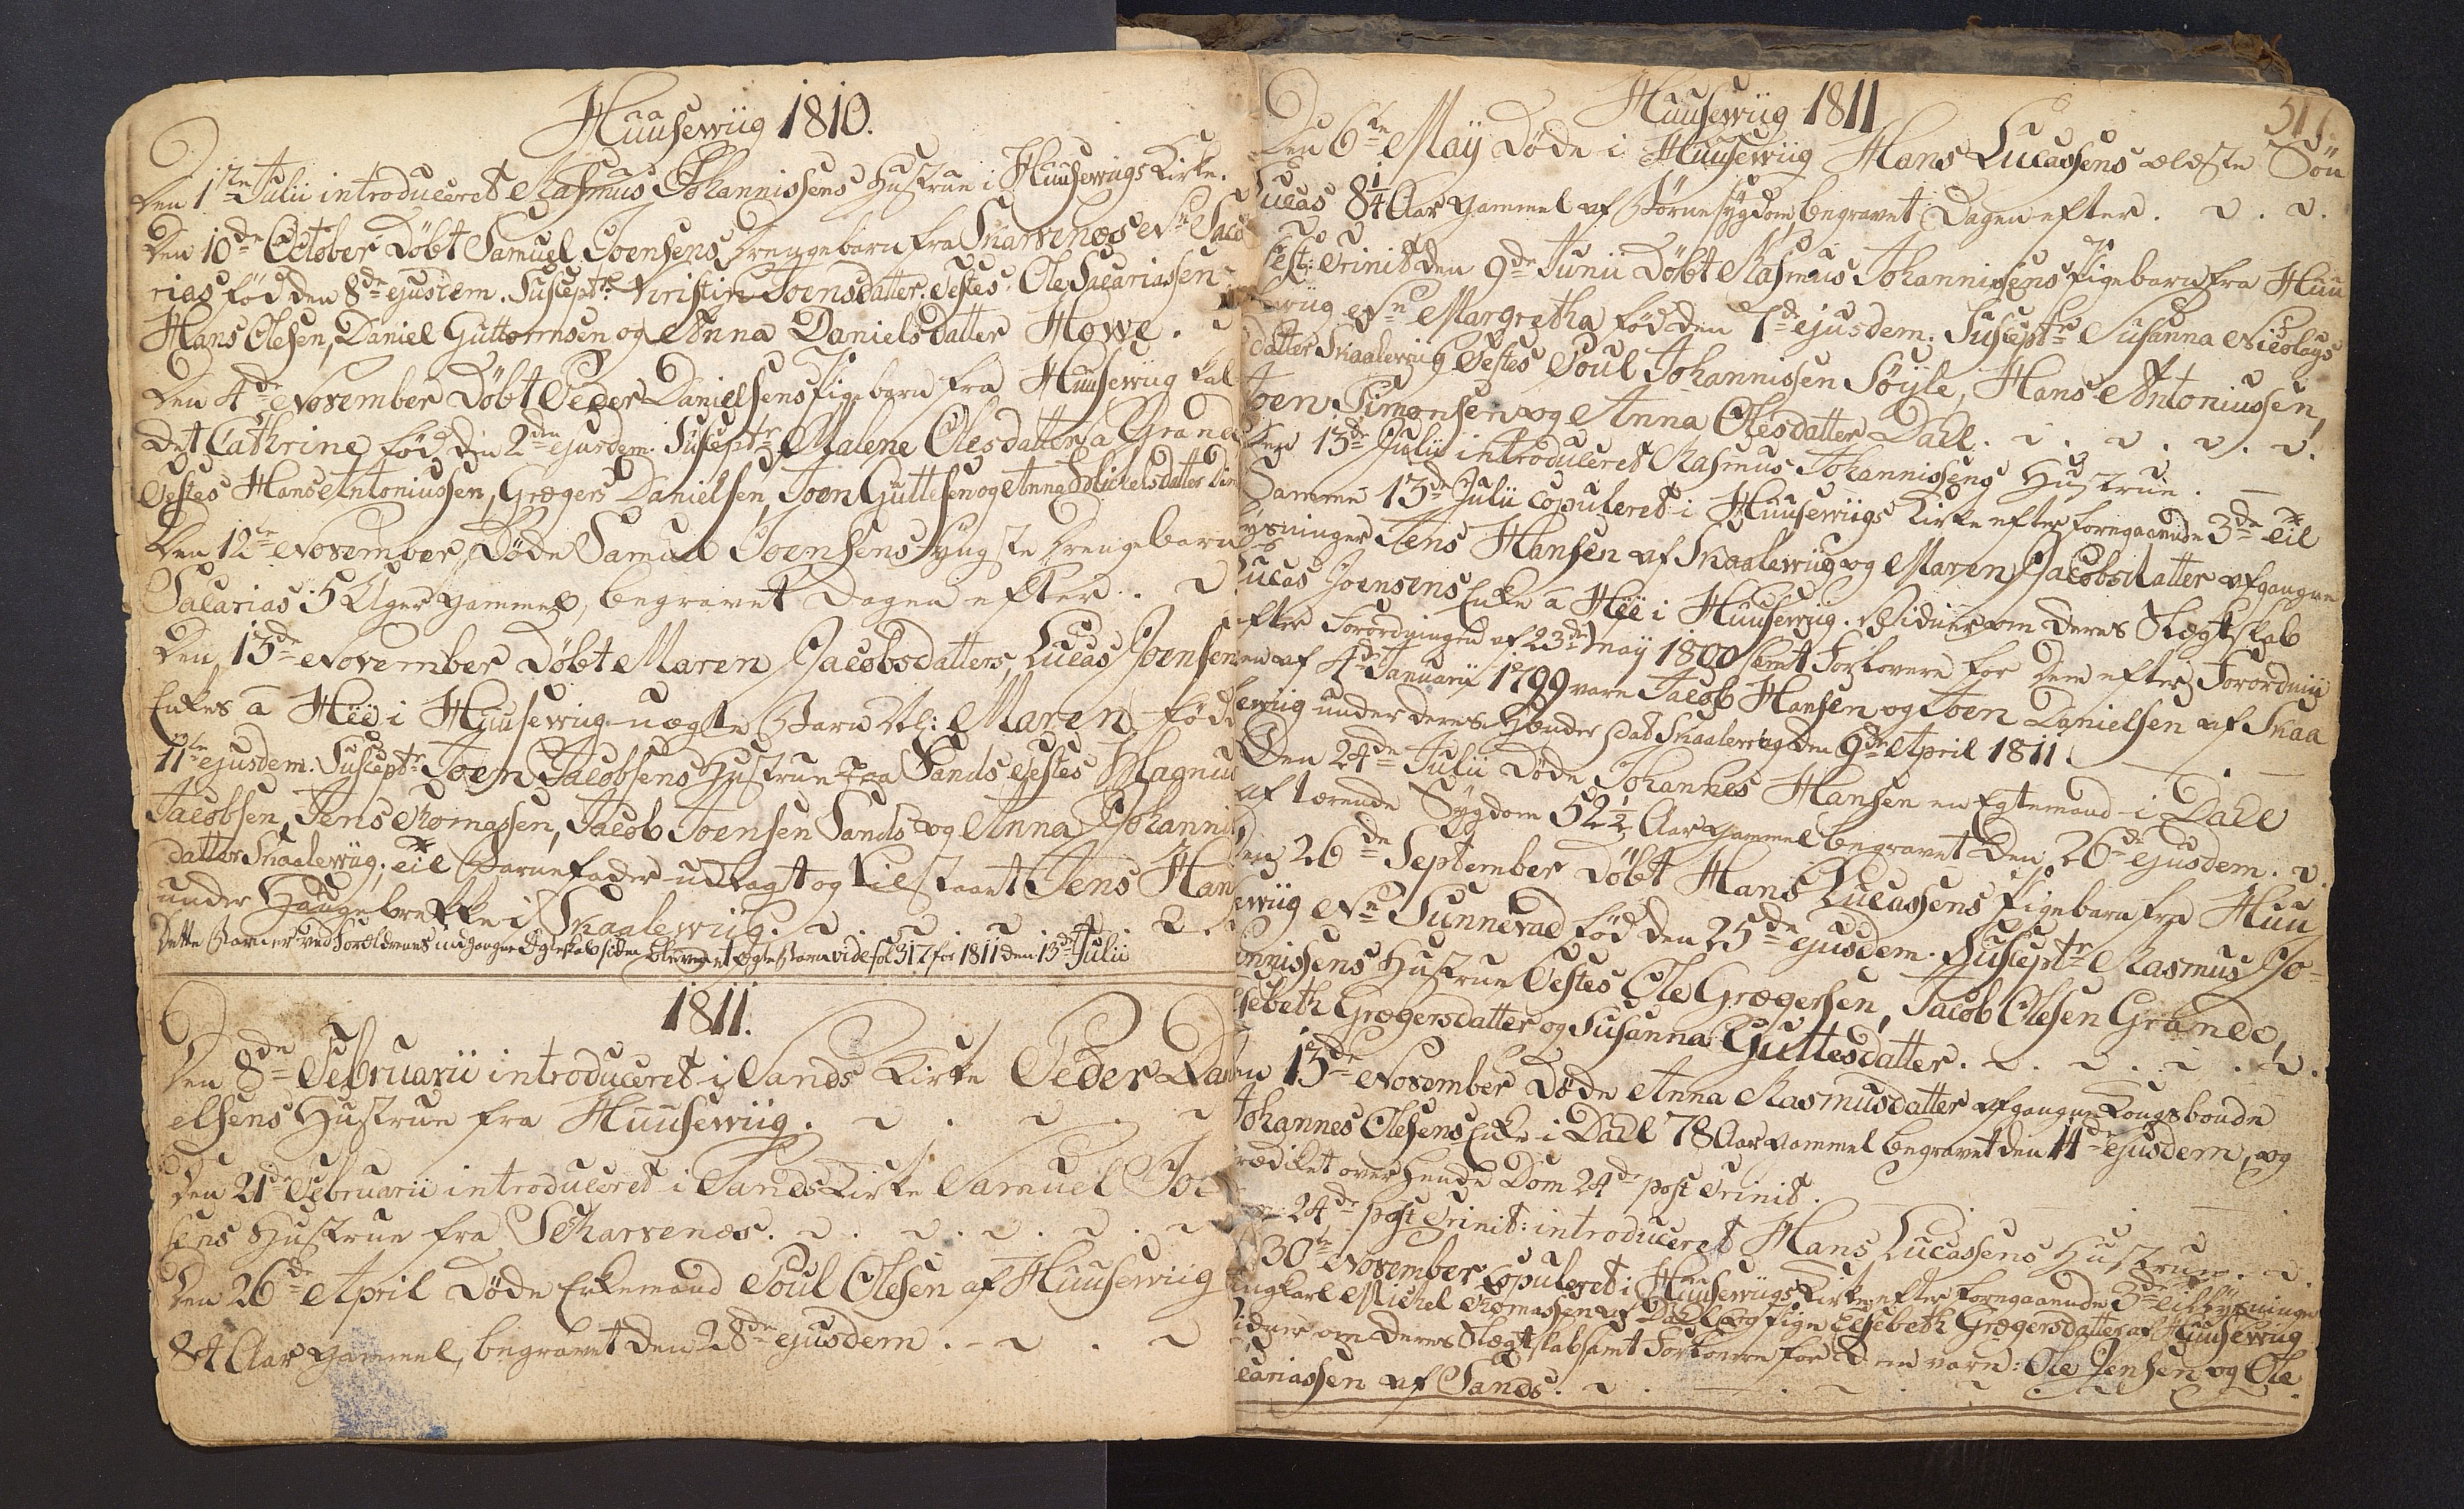 Huusewiig 1810.
Den 1ste Julii introduceret Rasmus Johannissens Hustrue i Huusewiigs Kirke.
Den 10de October Døbt Samuel Joensens Drengebarn fra Skarvenæs Nn Saca
rias fød den 8de ejusdem. Susceptr Kirstin Joensdatter. Testes Ole Sacariassen
Hans Olesen, Daniel Guttormsen og Anna Danielsdatter Howe.
Den 4de November Døbt Peder Danielsens Pigebarn fra Huusewiig kal
det Cathrine fød den 2den ejusdem. Susceptr Malene Olesdatter a Grand
Testes Hans Antoniussen, Grægers Danielsen, Joen Guttesen og Anna Michelsdatter
Den 12te November Døde Samuel Joensens yngste Drengebarn
Sacarias 5 Uger gammel, begravet Dagen efter.
Den 13de November Døbt Maren Jacobsdatters, Lucas Joensens
Enkes a Heë i Huusewiig uægte Barn Nl: Maren fød
11te ejusdem. Susceptr Joen Jacobsens Hustrue paa Sands Testes Magnus
Jacobsen, Jens Thomassen, Jacob Joensen Sands og Anna Johannis
datter Skaalewiig; til Barnefader udlagt og tilstaaet Jens Han
under Haugebrekke i Skaalewiig.
Dette Barn er ved Forældrenes indgangne Ægteskab siden blevet et ægte Barn vide fol 317 for 1811 den 13de Julii
1811.
Den 8de Februarii introduceret i Sands Kirke Peder Dani
elsens Hustrue fra Huusewiig.
Den 21de Februarii introduceret i Sands Kirke Samuel Joe
sens Hustrue fra Skarvenæs.
Den 26de April Døde Enkemand Poul Olesen af Huusewiig
84 Aar gammel, begravet den 28de ejusdem.
Huusewiig 1811
317.
Den 6te Maÿ Døde i Huusewiig Hans Lucassens ældste Søn
Lucas 8 1/4 Aar gammel af Børnesygdom, begravet Dagen efter.
Fest: Trinit den 9de Junii Døbt Rasmus Johannissens Pigebarn fra Huu
sewiig Nn Margretha fød den 7de ejusdem. Susceptr Susanna Nicolays
datter Skaalewiig Testes Poul Johannissen Søyle, Hans Antoniussen,
Joen Simonsen og Anna Olesdatter Dahl.
Den 13de Julii introduceret Rasmus Johannissens Hustrue.
Samme 13de Julii copuleret i Huusewiigs Kirke efter foregaaende 3de til
lysninger Jens Hansen af Skaalewiig og Maren Jacobsdatter afgangne
Lucas Joensens Enke a Heë i Huusewiig. Vidner om deres Slægtskab
efter Forordningen af 23de Maÿ 1800 samt Forlovere for dem efter Forordnin
en af 4de Januarii 1799 vare Jacob Hansen og Joen Danielsen af Skaa
lewiig under deres Hænder dat Skaalewiig den 9de April 1811.
Den 24de Julii Døde Johannes Hansen en Egtemand i Dahl
af tærende Sygdom 52 1/2 Aar gammel begravet den 26de ejusdem.
Den 26de September Døbt Hans Lucassens Pigebarn fra Huu
sewiig Nn Sunnevad fød den 25de ejusdem. Susceptr Rasmus Jo-
hannissens Hustrue Testes Ole Grægersen, Jacob Olesen Grande,
Elsebeth Grægersdatter og Susanna Guttesdatter.
Den 13de November Døde Anna Rasmusdatter afgangne Kongsbonde
Johannes Olesens Enke i Dahl 78 Aar gammel begravet den 14de ejusdem, og
prædiket over hende Dom 24de post Trinit.
Dom: 24de post Trinit: introduceret Hans Lucassens Hustrue.
30te November copuleret i Huusewiigs Kirke efter foregaaende 3de tillysninge
Ungkarl Michel Thomassen af Dahl og Pige Elsebeth Grægersdatter af Huusewiig
Vidner om deres Slægtskab samt Forlovere for dem vare: Ole Jensen og Ole
Sacariassen af Sands.